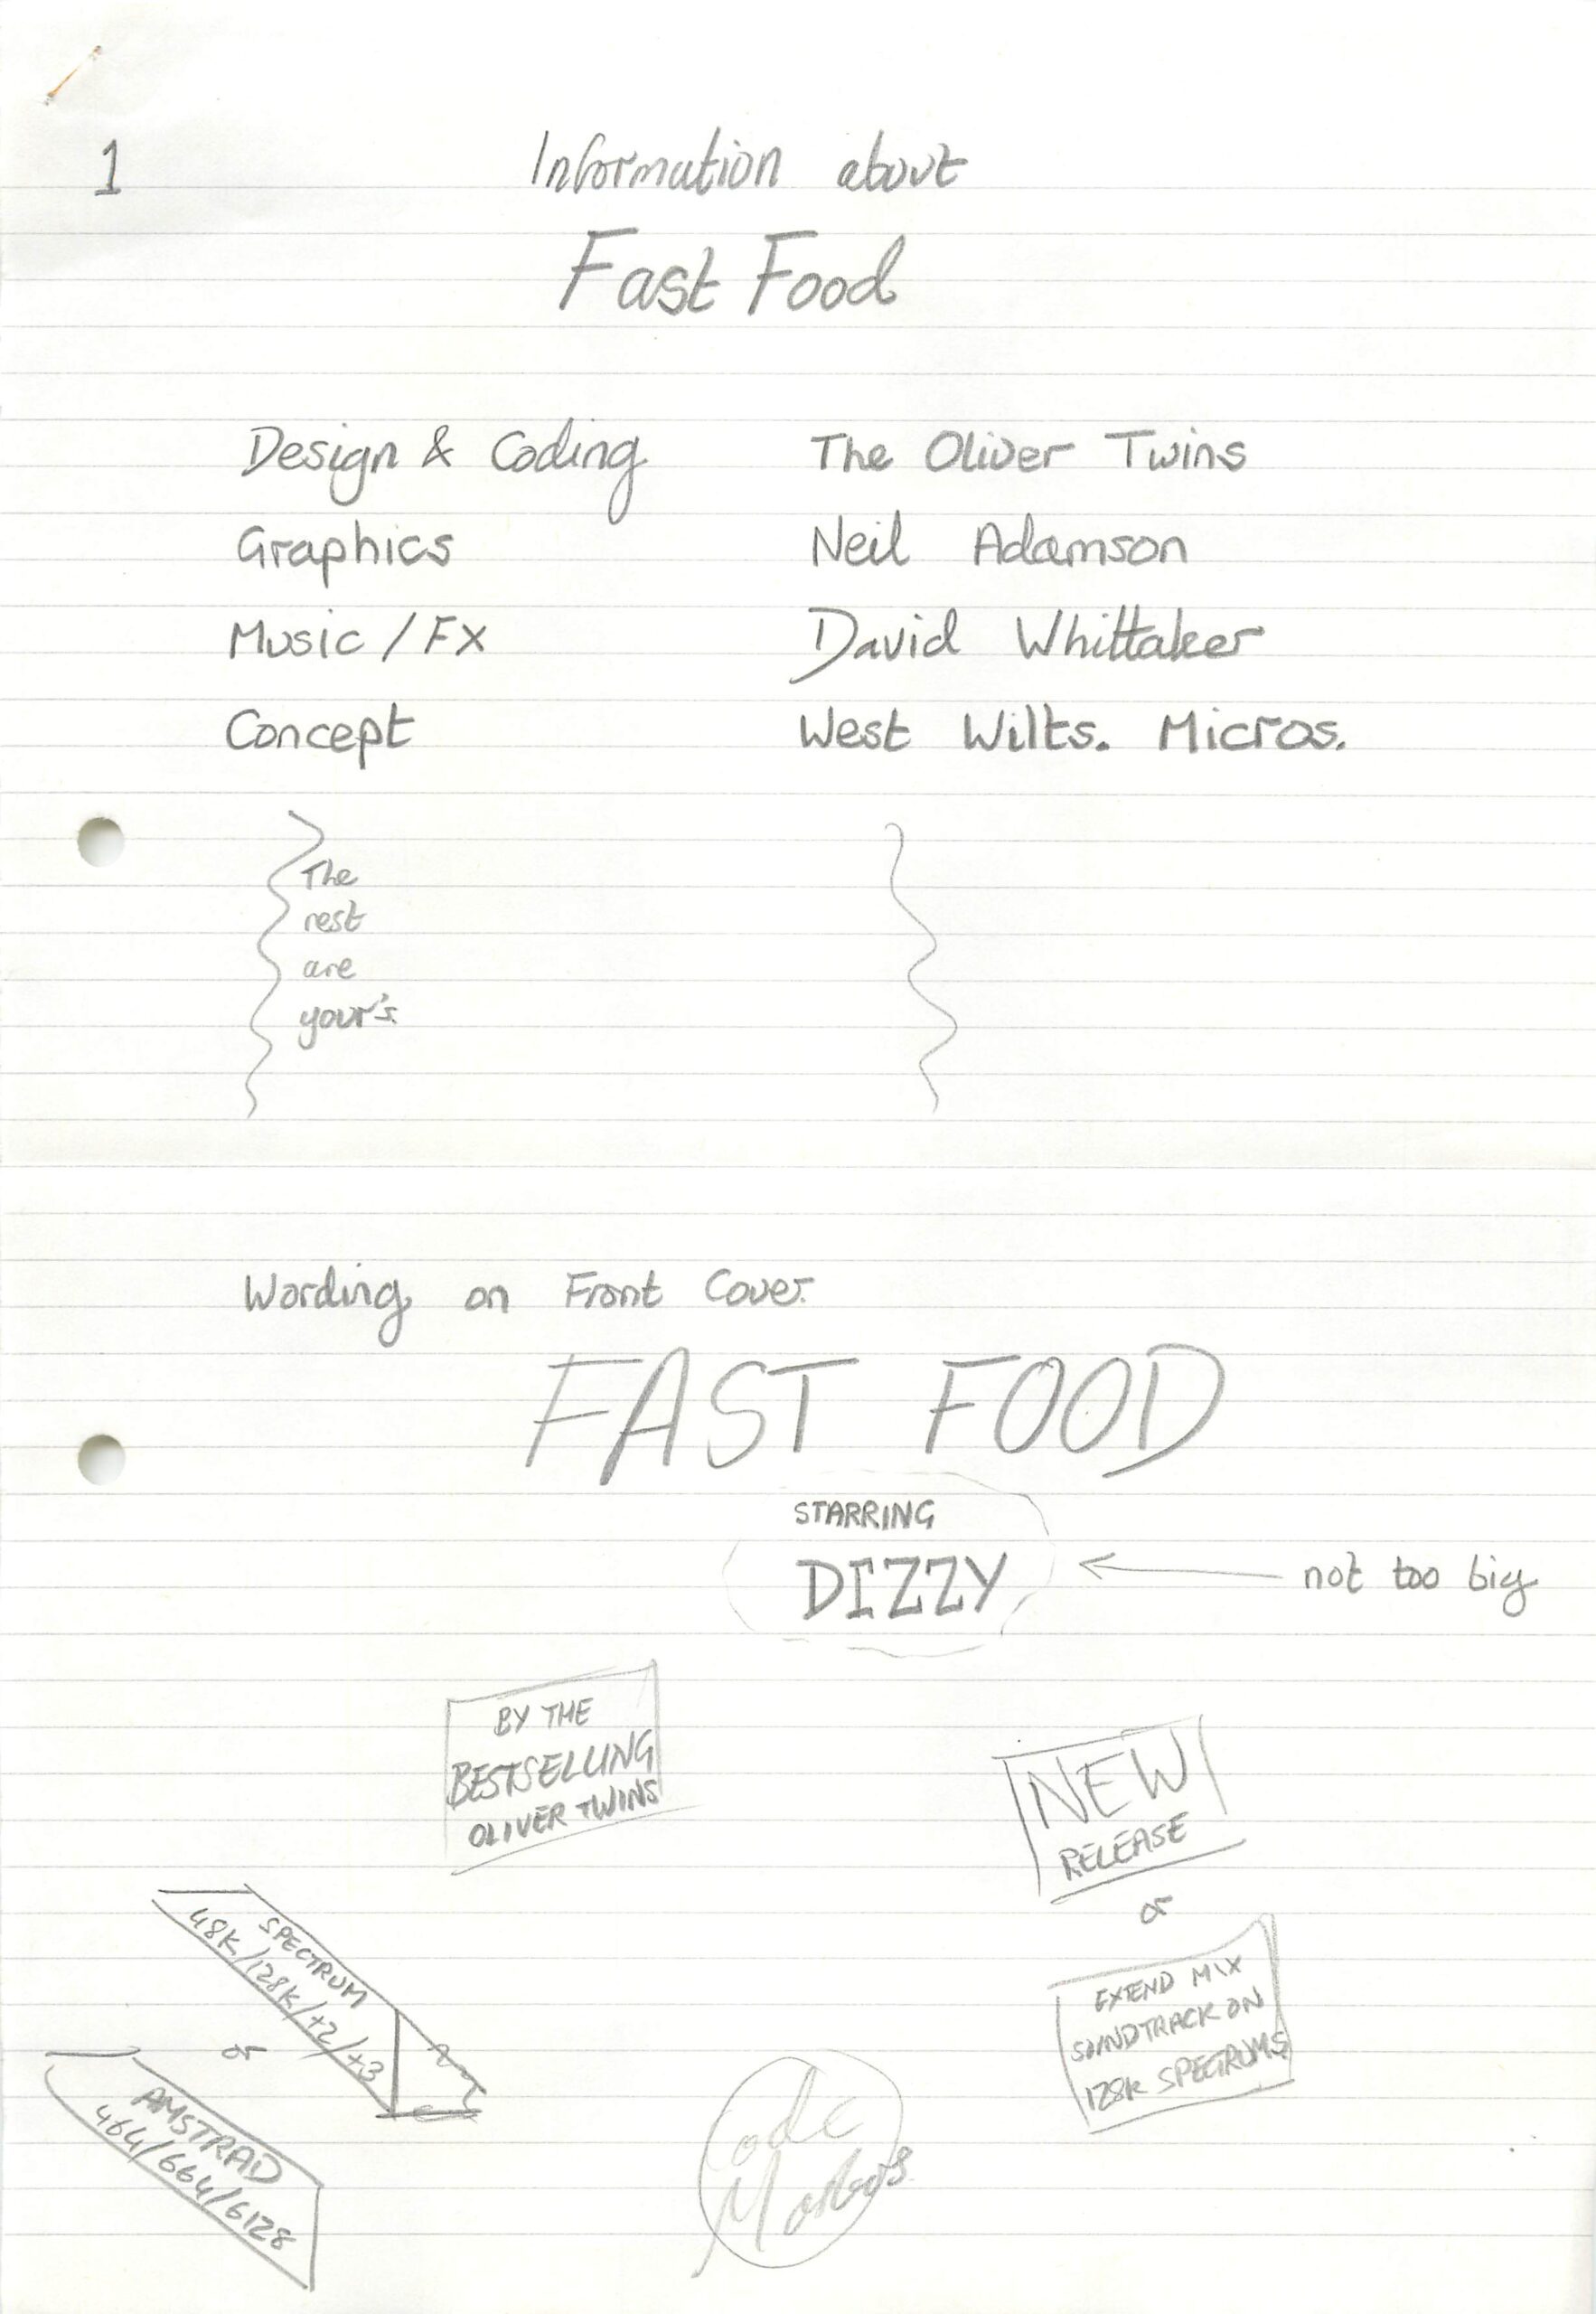 1
Information about
Fast Food
Design & Coding The Oliver Twins
Graphics Neil Adamson
Music / FX David Whittaker
Concept West Wilts. Micros.
The
rest
are
your's.
Wording on Front Cover.
FAST FOOD
STARRING
DIZZY
not too big
BY THE
BESTSELLING
OLIVER TWINS
NEW
RELEASE
or
EXTEND MIX
SOUNDTRACK ON
128K SPECTRUMS
SPECTRUM
48K/128K/+2/+3
or
AMSTRAD
464/664/6128
Code
Masters